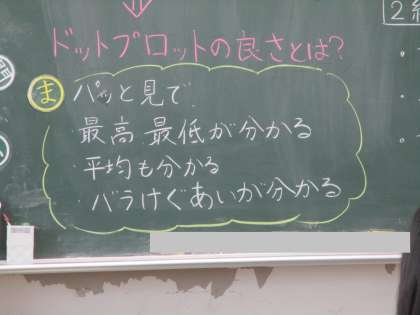 2
ドットプロットの良さとは?
ま パッと見で
最高 最低が分かる
・平均も分かる
・バラけぐあいが分かる